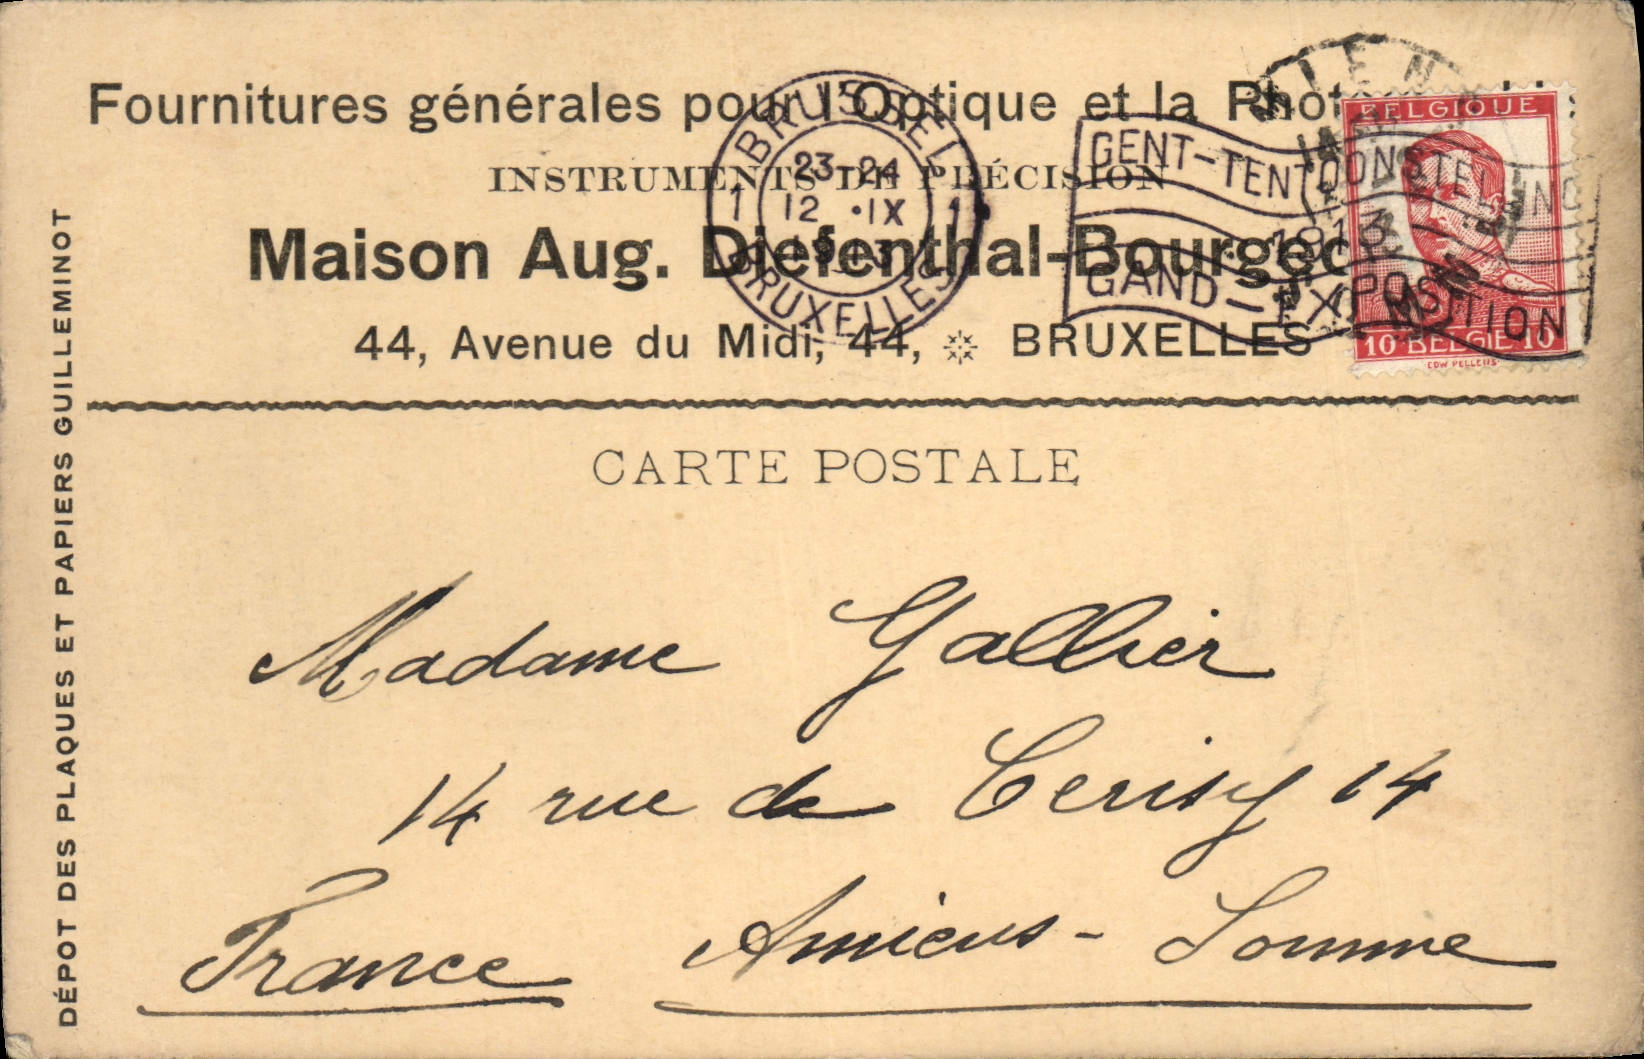 Fournitures générales pour l'Optique et la
INSTRUMENTS DE PRÉCISION
Maison Aug. Diefenthal-Bourgeois
44, Avenue du Midi, 44, BRUXELLES
BRUSSEL
1 23-24 1
12 ·IX
1913
BRUXELLES
GENT-TENTOONSTELLING
1913
GAND-EXPOSITION
BELGIQUE
10 BELGIE 10
EDW PELLENS
DÉPOT DES PLAQUES ET PAPIERS GUILLEMINOT
CARTE POSTALE
Madame Gallier
14 rue de Cerisy 14
Amiens - Somme
France